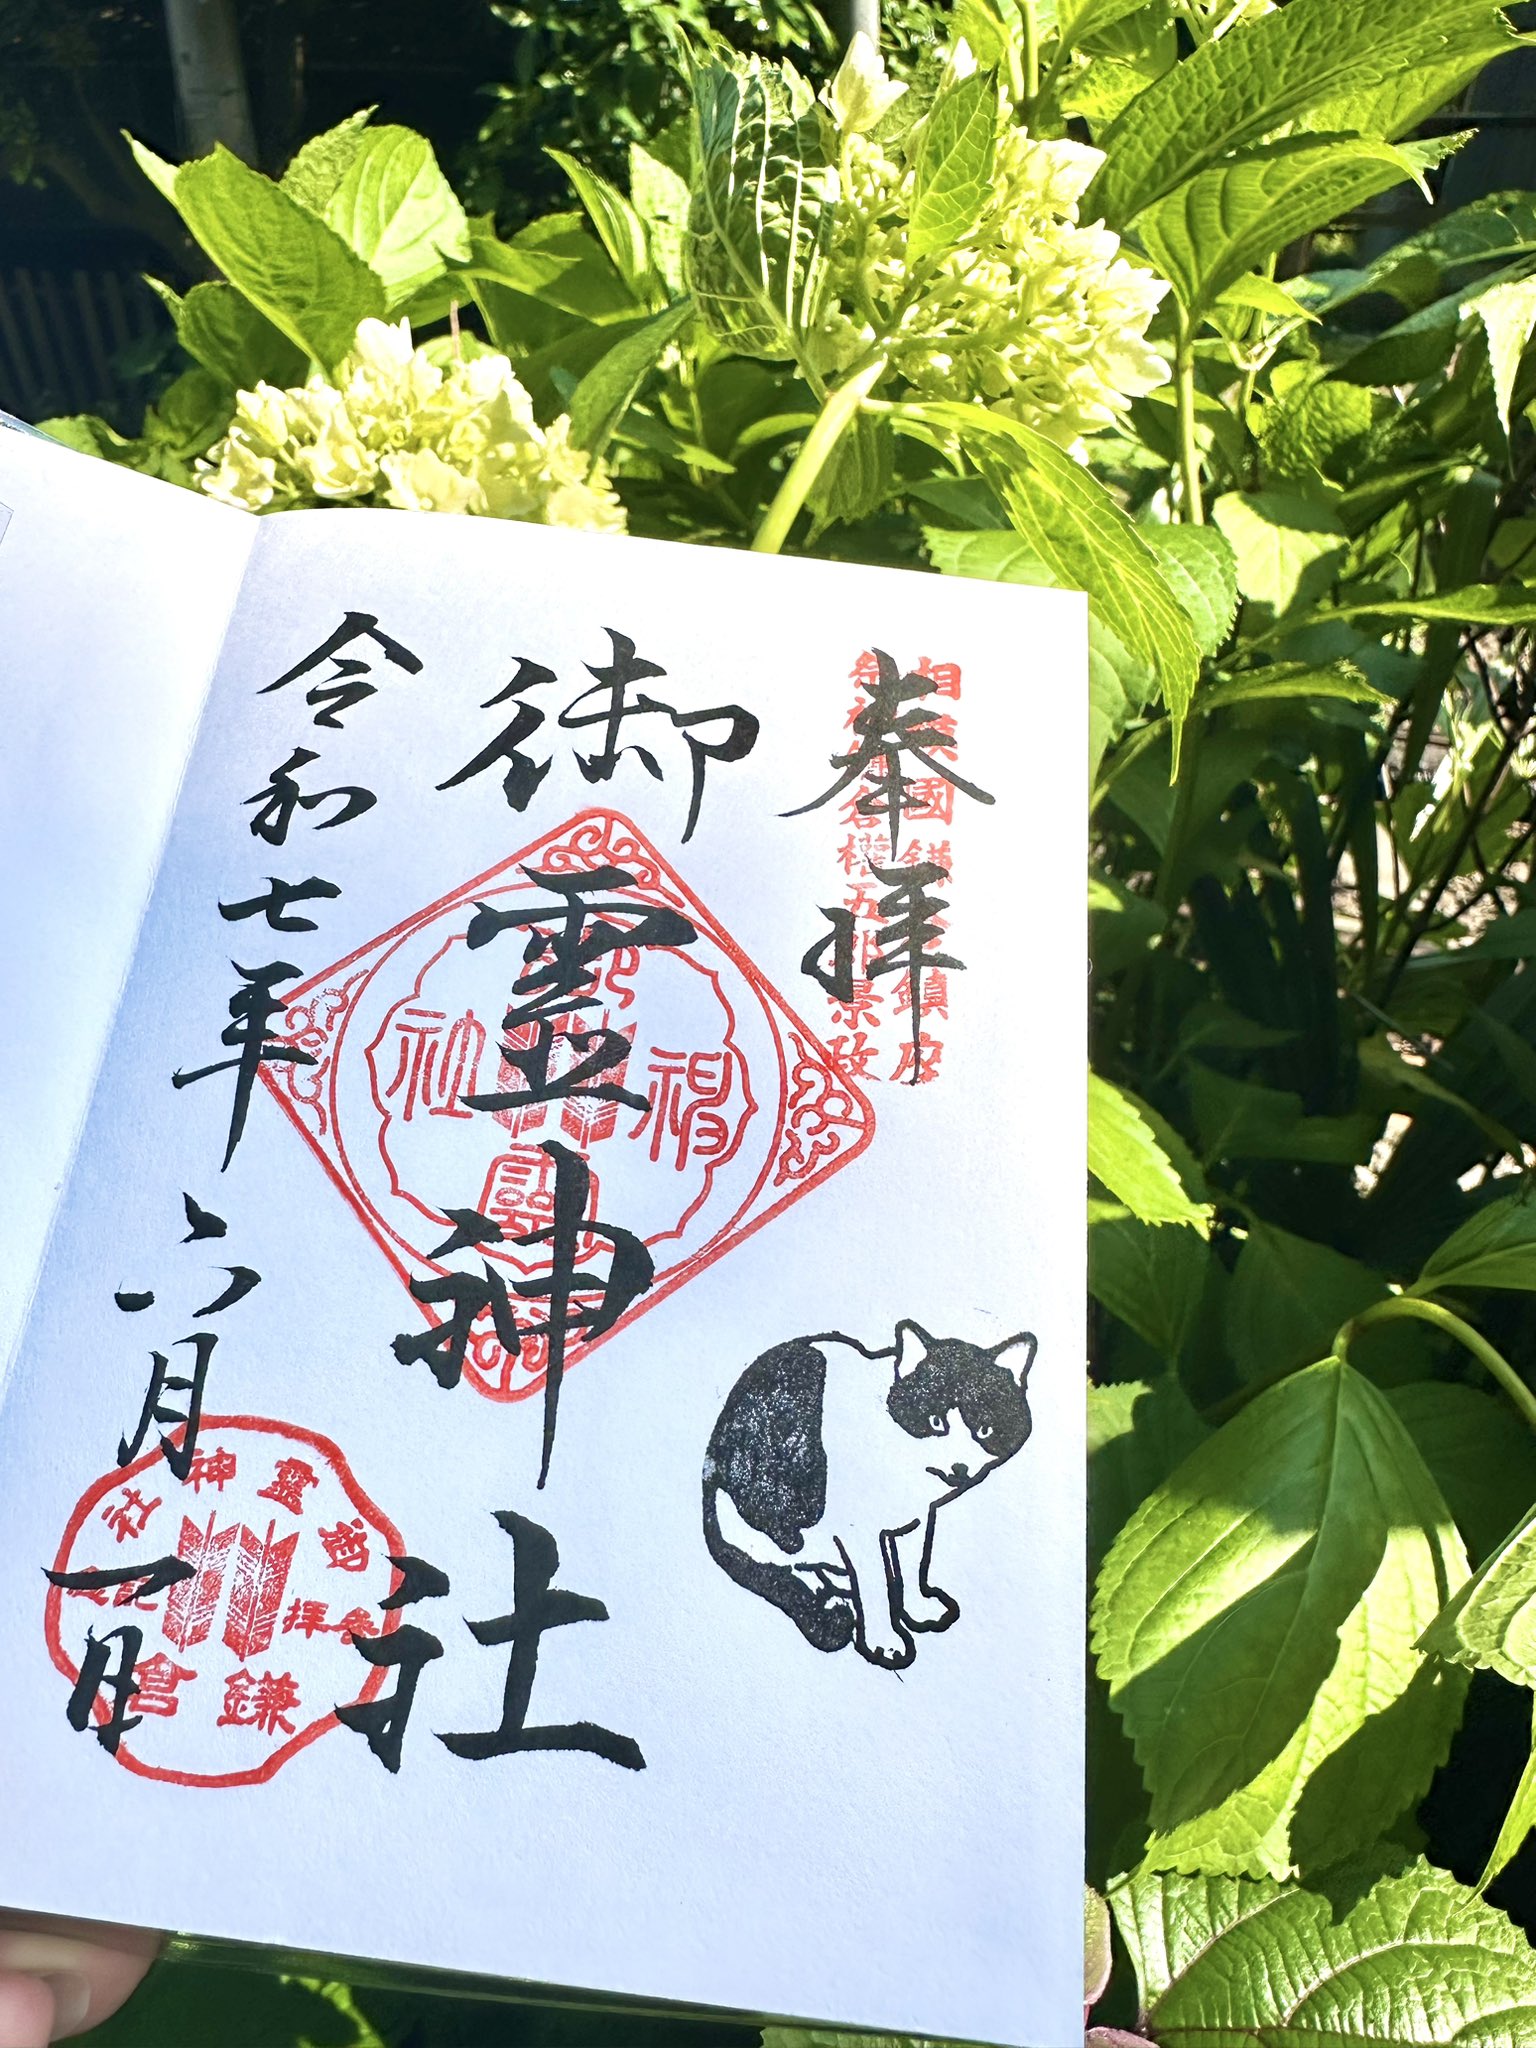 奉拝
相模國鎌倉鎮座
祭神鎌倉權五郎景政
御霊神社
御霊神社
令和七年六月一日
御霊神社
参拝
鎌倉